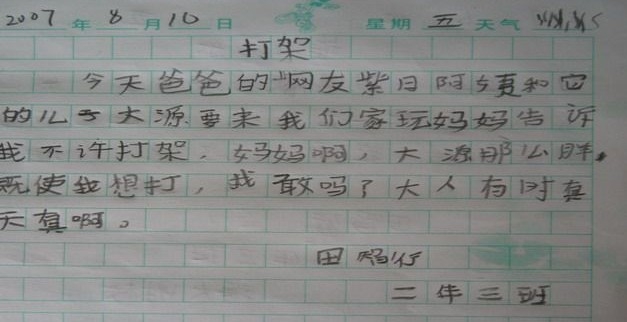 2007年8月10日 星期五天气
打架
今天爸爸的"网友紫日阿姨和它
的儿子大源要来我们家玩妈妈告诉
我不许打架，妈妈啊，大源那么胖，
既使我想打，我敢吗？大人有时真
天真啊。
田
二年三班